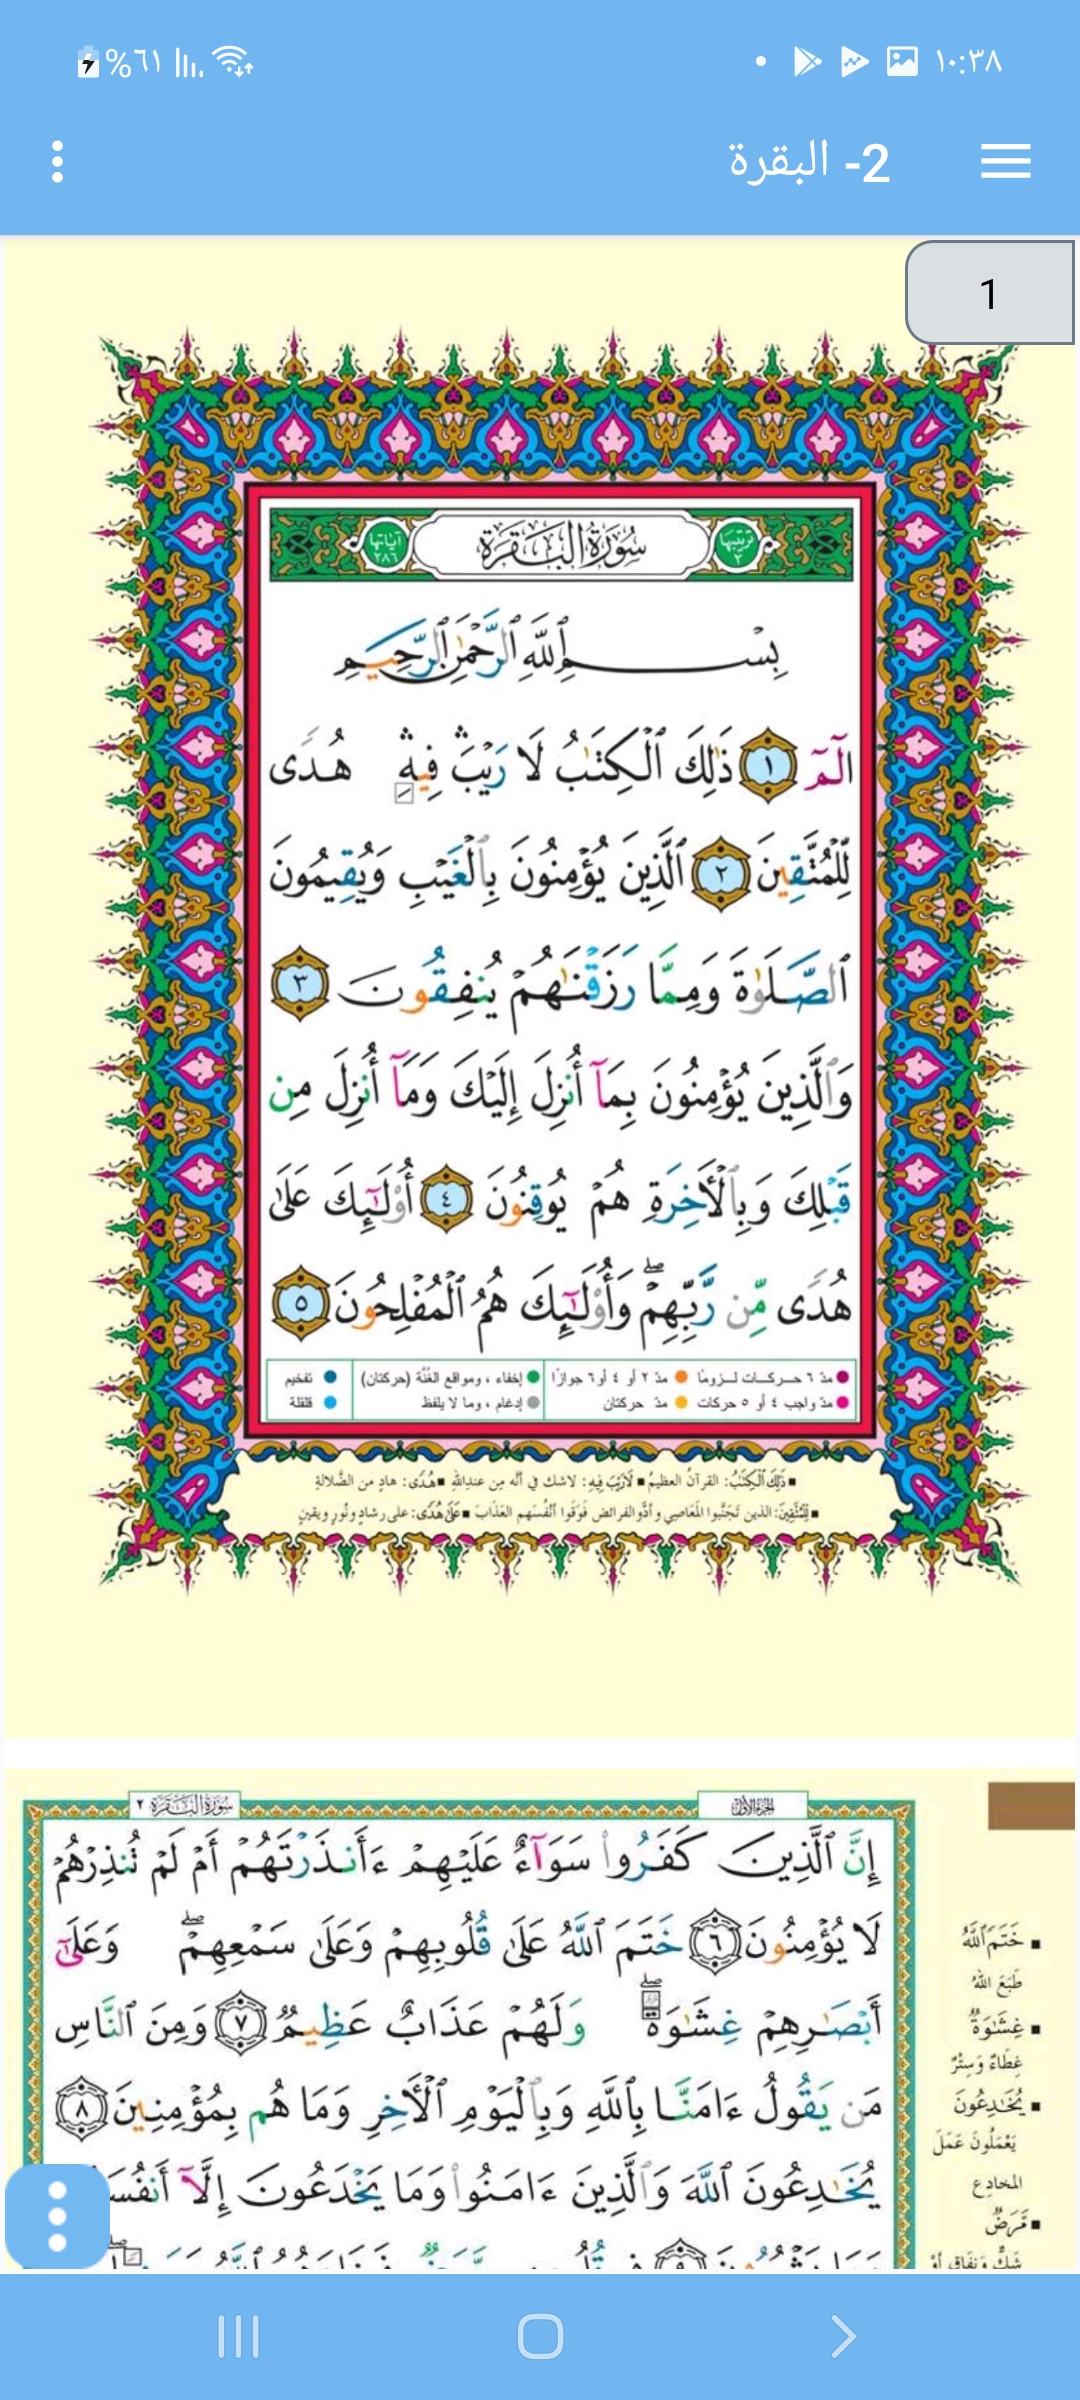 ١٠:٣٨
%٦١
2- البقرة
1
ترتيبها ٢
سُورَةُ البَقَرَة
آياتها ٢٨٦
بِسْمِ ٱللَّهِ ٱلرَّحْمَٰنِ ٱلرَّحِيمِ
الٓمٓ ١ ذَٰلِكَ ٱلْكِتَٰبُ لَا رَيْبَ ۛ فِيهِ ۛ هُدًى
لِّلْمُتَّقِينَ ٢ ٱلَّذِينَ يُؤْمِنُونَ بِٱلْغَيْبِ وَيُقِيمُونَ
ٱلصَّلَوٰةَ وَمِمَّا رَزَقْنَٰهُمْ يُنفِقُونَ ٣
وَٱلَّذِينَ يُؤْمِنُونَ بِمَآ أُنزِلَ إِلَيْكَ وَمَآ أُنزِلَ مِن
قَبْلِكَ وَبِٱلْأَخِرَةِ هُمْ يُوقِنُونَ ٤ أُو۟لَٰٓئِكَ عَلَىٰ
هُدًى مِّن رَّبِّهِمْ ۖ وَأُو۟لَٰٓئِكَ هُمُ ٱلْمُفْلِحُونَ ٥
مدّ ٦ حـركـات لـزومًا مدّ ٢ أو ٤ أو ٦ جوازًا إخفاء ، ومواقع الغُنَّة (حركتان) تفخيم
مدّ واجب ٤ أو ٥ حركات مدّ حركتان إدغام ، وما لا يلفظ قلقلة
■ ذَٰلِكَ ٱلْكِتَٰبُ: القرآنُ العظيمُ ■ لَا رَيْبَ فِيهِ: لا شك في أنّه مِن عندِ الله ■ هُدًى: هادٍ من الضَّلالةِ
■ لِلْمُتَّقِينَ: الذين تَجَنَّبوا المَعَاصِي وأدَّوا الفرائضَ فَوَقَوا أنْفُسَهم العَذَابَ ■ عَلَىٰ هُدًى: على رشادٍ ونُورٍ ويقينٍ
الجُزْءُ الأَوَّل
سُورَةُ البَقَرَة ٢
إِنَّ ٱلَّذِينَ كَفَرُوا۟ سَوَآءٌ عَلَيْهِمْ ءَأَنذَرْتَهُمْ أَمْ لَمْ تُنذِرْهُمْ
لَا يُؤْمِنُونَ ٦ خَتَمَ ٱللَّهُ عَلَىٰ قُلُوبِهِمْ وَعَلَىٰ سَمْعِهِمْ ۖ وَعَلَىٰٓ
أَبْصَٰرِهِمْ غِشَٰوَةٌ ۖ وَلَهُمْ عَذَابٌ عَظِيمٌ ٧ وَمِنَ ٱلنَّاسِ
مَن يَقُولُ ءَامَنَّا بِٱللَّهِ وَبِٱلْيَوْمِ ٱلْأَخِرِ وَمَا هُم بِمُؤْمِنِينَ ٨
يُخَٰدِعُونَ ٱللَّهَ وَٱلَّذِينَ ءَامَنُوا۟ وَمَا يَخْدَعُونَ إِلَّآ
■ خَتَمَ ٱللَّهُ
طَبَعَ اللهُ
■ غِشَٰوَةٌ
غِطَاءٌ وَسِتْرٌ
■ يُخَٰدِعُونَ
يَعْمَلُونَ عَمَلَ
المخادِعِ
■ مَّرَضٌ
شَكٌّ وَنِفَاقٌ أَوْ